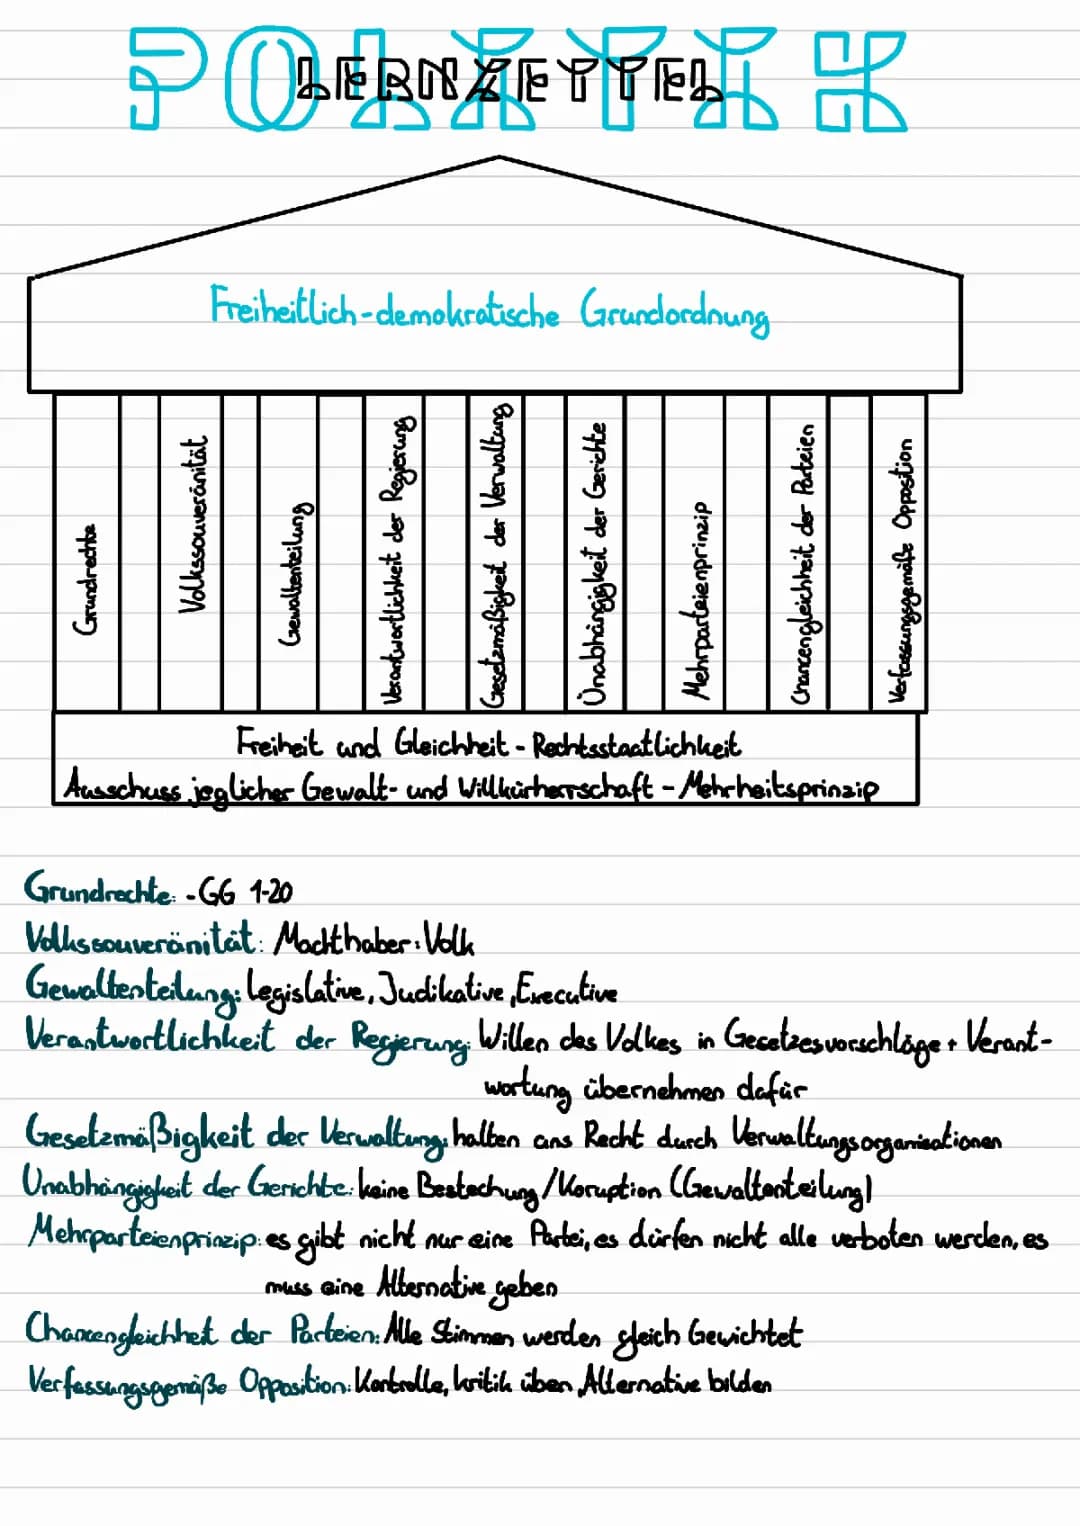 POLITIK
LERNZETTEL
Freiheitlich-demokratische Grundordnung
Grundrechte
Volkssouveränität
Gewaltenteilung
Verantwortlichkeit der Regierung
Gesetzmäßigkeit der Verwaltung
Unabhängigkeit der Gerichte
Mehrparteienprinzip
Chancengleichheit der Parteien
Verfassungsgemäße Opposition
Freiheit und Gleichheit - Rechtsstaatlichkeit
Ausschuss jeglicher Gewalt- und Willkürherrschaft - Mehrheitsprinzip
Grundrechte: -GG 1-20
Volkssouveränität: Machthaber: Volk
Gewaltenteilung: Legislative, Judikative, Executive
Verantwortlichkeit der Regierung: Willen des Volkes in Gesetzesvorschläge + Verant-
wortung übernehmen dafür
Gesetzmäßigkeit der Verwaltung: halten ans Recht durch Verwaltungsorganisationen
Unabhängigkeit der Gerichte: keine Bestechung/Koruption (Gewaltenteilung)
Mehrparteienprinzip: es gibt nicht nur eine Partei, es dürfen nicht alle verboten werden, es
muss eine Alternative geben
Chancengleichheit der Parteien: Alle Stimmen werden gleich Gewichtet
Verfassungsgemäße Opposition: Kontrolle, kritik üben, Alternative bilden